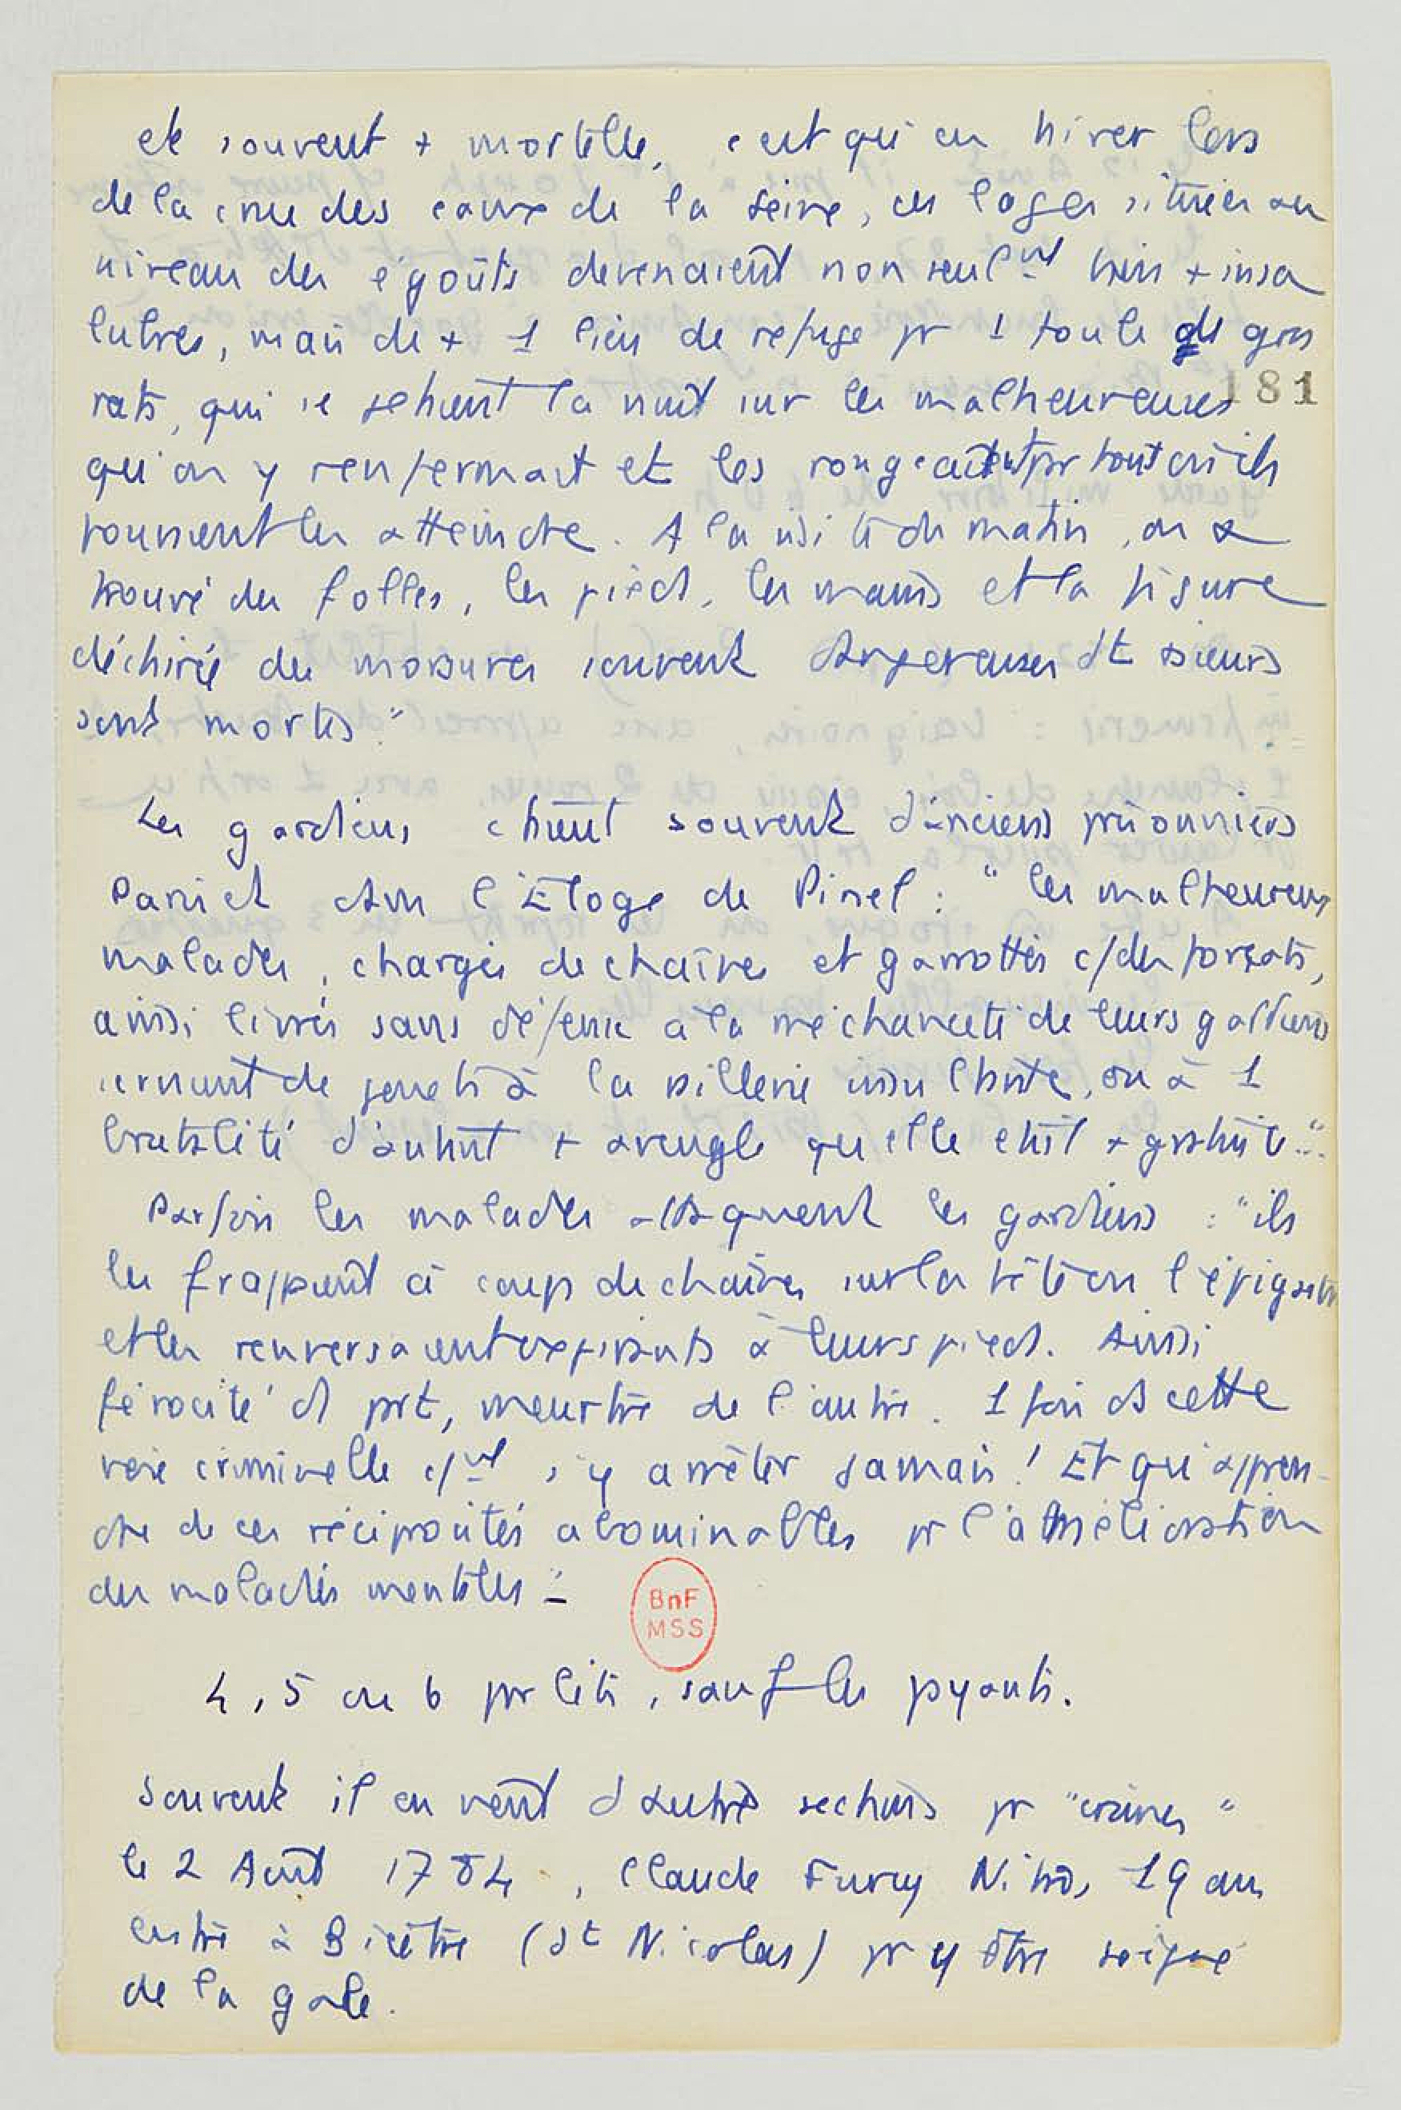 et souvent + mortelle, c'est qu'en hiver lors
de la crue des eaux de la Seine, ces loges situées au
niveau des égoûts devenaient non seulmt bien + insa
lubres, mais de + 1 lieu de refuge pr 1 foule de gros
rats, qui se jetaient la nuit sur les malheureuses
181
qu'on y renfermait et les rongeaient pr tout où ils
pouvaient les atteindre. A la visite du matin, on a
trouvé des folles, les pieds, les mains et la figure
déchirée de morsures souvent dangereuses dt plusieurs
sont mortes"
Les gardiens étaient souvent d'anciens prisonniers
Pariset dans l'Eloge de Pinel : "les malheureux
malades, chargés de chaînes et garrottés c/des forçats,
ainsi livrés sans défense à la méchanceté de leurs gardiens
servaient de jouets à la raillerie insultante, ou à 1
brutalité d'autant + aveugle qu'elle était + gratuite..."
Parfois les malades attaquent les gardiens : "ils
les frappaient à coup de chaînes sur la tête ou l'épigastre
et les renversaient expirants à leurs pieds. Ainsi
férocité d' part, meurtre de l'autre. 1 fois ds cette
voie criminelle c/mt s'y arrêter jamais ! Et qu'appren-
dre de ces réciprocités abominables pr l'amélioration
des maladies mentales"
BnF
MSS
4, 5 ou 6 par lits, sauf les payants.
Souvent il en vient d'autres sections pr "crimes"
le 2 Août 1784, Claude Furcy 19 ans
entre à Bicêtre (St Nicolas) pr y être soigné
de la gale.